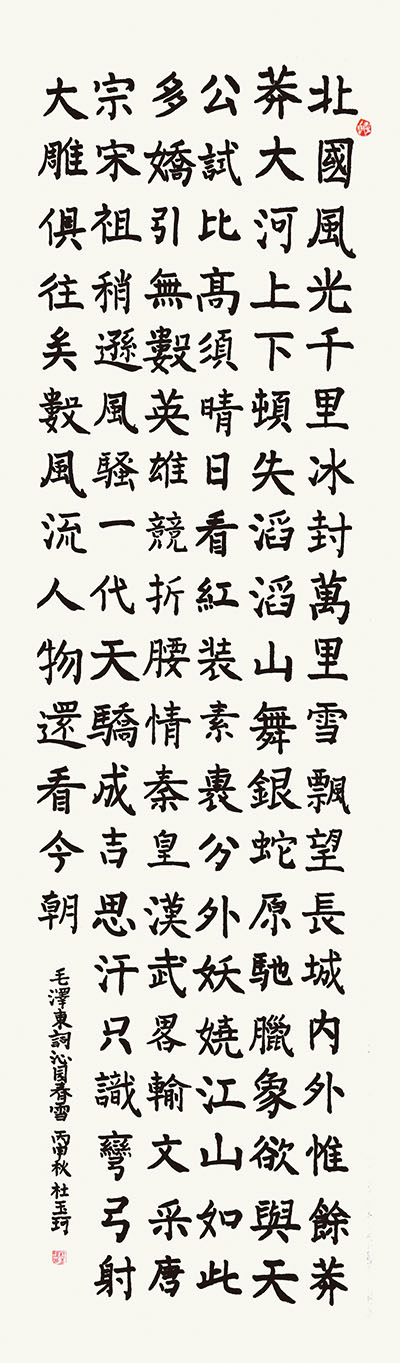 北國風光千里冰封萬里雪飄望長城内外惟餘莽
莽大河上下頓失滔滔山舞銀蛇原馳臘象欲與天
公試比髙須晴日看紅装素裹分外妖嬈江山如此
多嬌引無數英雄競折腰情秦皇漢武畧輸文采唐
宗宋祖稍遜風騷一代天驕成吉思汗只識彎弓射
大雕俱往矣數風流人物還看今朝
毛澤東詞沁园春雪 丙申秋 杜玉珂